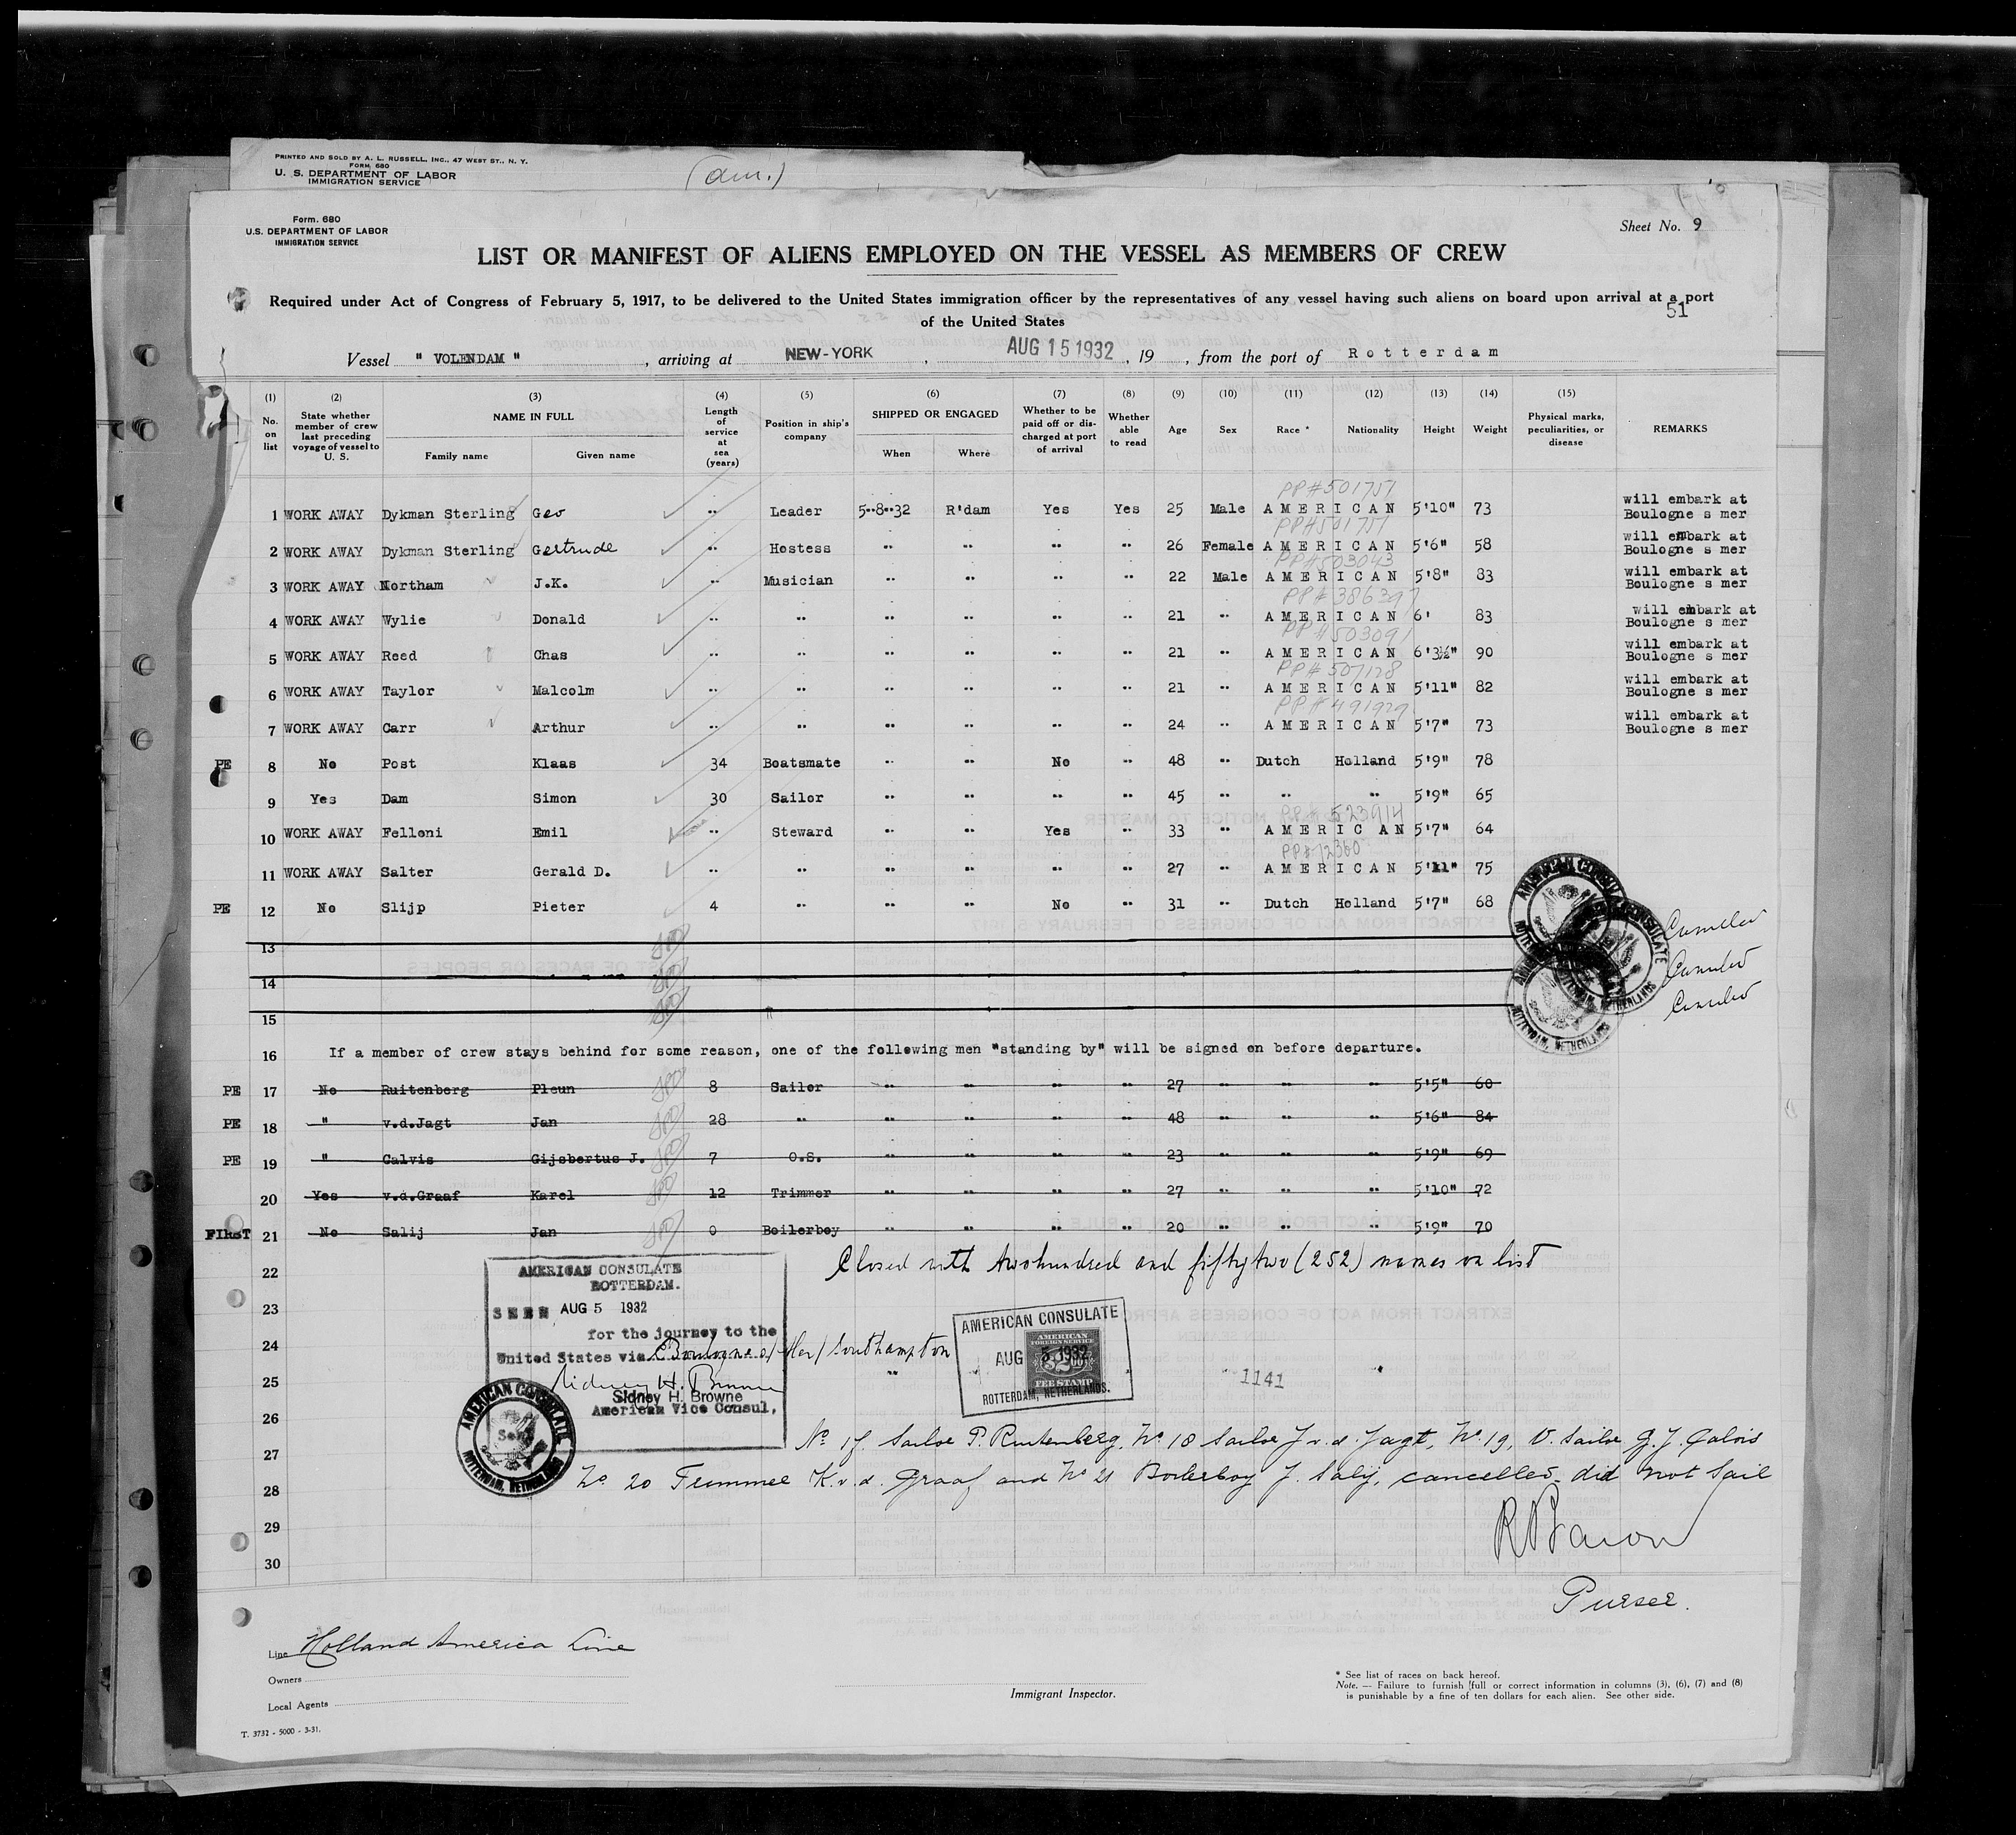 PRINTED AND SOLD BY A. L. RUSSELL, INC., 47 WEST ST., N. Y.
FORM 680
U. S. DEPARTMENT OF LABOR
IMMIGRATION SERVICE
(am.)
Form. 680
U.S. DEPARTMENT OF LABOR
IMMIGRATION SERVICE
Sheet No. 9
LIST OR MANIFEST OF ALIENS EMPLOYED ON THE VESSEL AS MEMBERS OF CREW
Required under Act of Congress of February 5, 1917, to be delivered to the United States immigration officer by the representatives of any vessel having such aliens on board upon arrival at a port
of the United States
51
Vessel " VOLENDAM " , arriving at NEW-YORK , AUG 15 1932 , 19 , from the port of Rotterdam
(1) No. on list
(2) State whether member of crew last preceding voyage of vessel to U. S.
(3) NAME IN FULL Family name Given name
(4) Length of service at sea (years)
(5) Position in ship's company
(6) SHIPPED OR ENGAGED When Where
(7) Whether to be paid off or discharged at port of arrival
(8) Whether able to read
(9) Age
(10) Sex
(11) Race *
(12) Nationality
(13) Height
(14) Weight
(15) Physical marks, peculiarities, or disease
REMARKS
PP#501751
1 WORK AWAY Dykman Sterling Geo " Leader 5-8-32 R'dam Yes Yes 25 Male AMERICAN 5'10" 73 will embark at Boulogne s mer
PP#501751
2 WORK AWAY Dykman Sterling Gertrude " Hostess " " " " 26 Female AMERICAN 5'6" 58 will embark at Boulogne s mer
PP#503043
3 WORK AWAY Northam J.K. " Musician " " " " 22 Male AMERICAN 5'8" 83 will embark at Boulogne s mer
PP#386397
4 WORK AWAY Wylie Donald " " " " " " 21 " AMERICAN 6' 83 will embark at Boulogne s mer
PP#503091
5 WORK AWAY Reed Chas " " " " " " 21 " AMERICAN 6'3½" 90 will embark at Boulogne s mer
PP#507128
6 WORK AWAY Taylor Malcolm " " " " " " 21 " AMERICAN 5'11" 82 will embark at Boulogne s mer
PP#491929
7 WORK AWAY Carr Arthur " " " " " " 24 " AMERICAN 5'7" 73 will embark at Boulogne s mer
PE 8 No Post Klaas 34 Boatsmate " " No " 48 " Dutch Holland 5'9" 78
9 Yes Dam Simon 30 Sailor " " " " 45 " " " 5'9" 65
PP#523914
10 WORK AWAY Felloni Emil " Steward " " Yes " 33 " AMERICAN 5'7" 64
PP#12360
11 WORK AWAY Salter Gerald D. " " " " " " 27 " AMERICAN 5'11" 75
PE 12 No Slijp Pieter 4 " " " No " 31 " Dutch Holland 5'7" 68
13
14
15
16 If a member of crew stays behind for some reason, one of the following men "standing by" will be signed on before departure.
PE 17 No Ruitenberg Pleun 8 Sailor " " " " 27 " " " 5'5" 60
PE 18 " v.d.Jagt Jan 28 " " " " " 48 " " " 5'6" 84
PE 19 " Calvis Gijsbertus J. 7 O.S. " " " " 23 " " " 5'9" 69
20 Yes v.d.Graaf Karel 12 Trimmer " " " " 27 " " " 5'10" 72
FIRST 21 No Salij Jan 0 Boilerboy " " " " 20 " " " 5'9" 70
22 Closed with twohundred and fiftytwo (252) names on list
AMERICAN CONSULATE
ROTTERDAM.
23 SEEN AUG 5 1932
for the journey to the
24 United States via Boulogne s/Mer/Southampton
25
Sidney H. Browne
Sidney H. Browne
American Vice Consul.
AMERICAN CONSULATE
AUG 5 1932
AMERICAN FOREIGN SERVICE
$2.00
FEE STAMP
ROTTERDAM, NETHERLANDS.
1141
AMERICAN CONSULATE
Seal
ROTTERDAM, NETHERLANDS
26
27 No 17 Sailor P. Ruitenberg, No 18 Sailor J v.d. Jagt, No 19, O. Sailor G. J. Calvis
28 No 20 Trimmer K. v. d. Graaf and No 21 Boilerboy J. Salij, cancelled did not sail
29
30
Purser.
Line Holland America Line
Owners
Local Agents
Immigrant Inspector.
* See list of races on back hereof.
Note. — Failure to furnish full or correct information in columns (3), (6), (7) and (8)
is punishable by a fine of ten dollars for each alien. See other side.
T. 3732 - 5000 - 3-31.